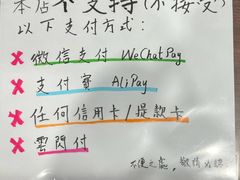 本店不支持(不接受)
以下支付方式:
微信支付 WeChatPay
支付寶 AliPay
任何信用卡/提款卡
雲閃付
不便之處, 敬請見諒